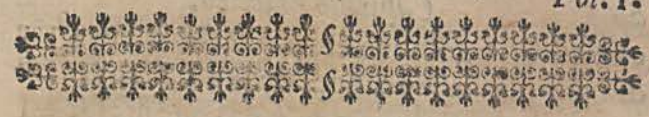 Fol. 1.
§
§